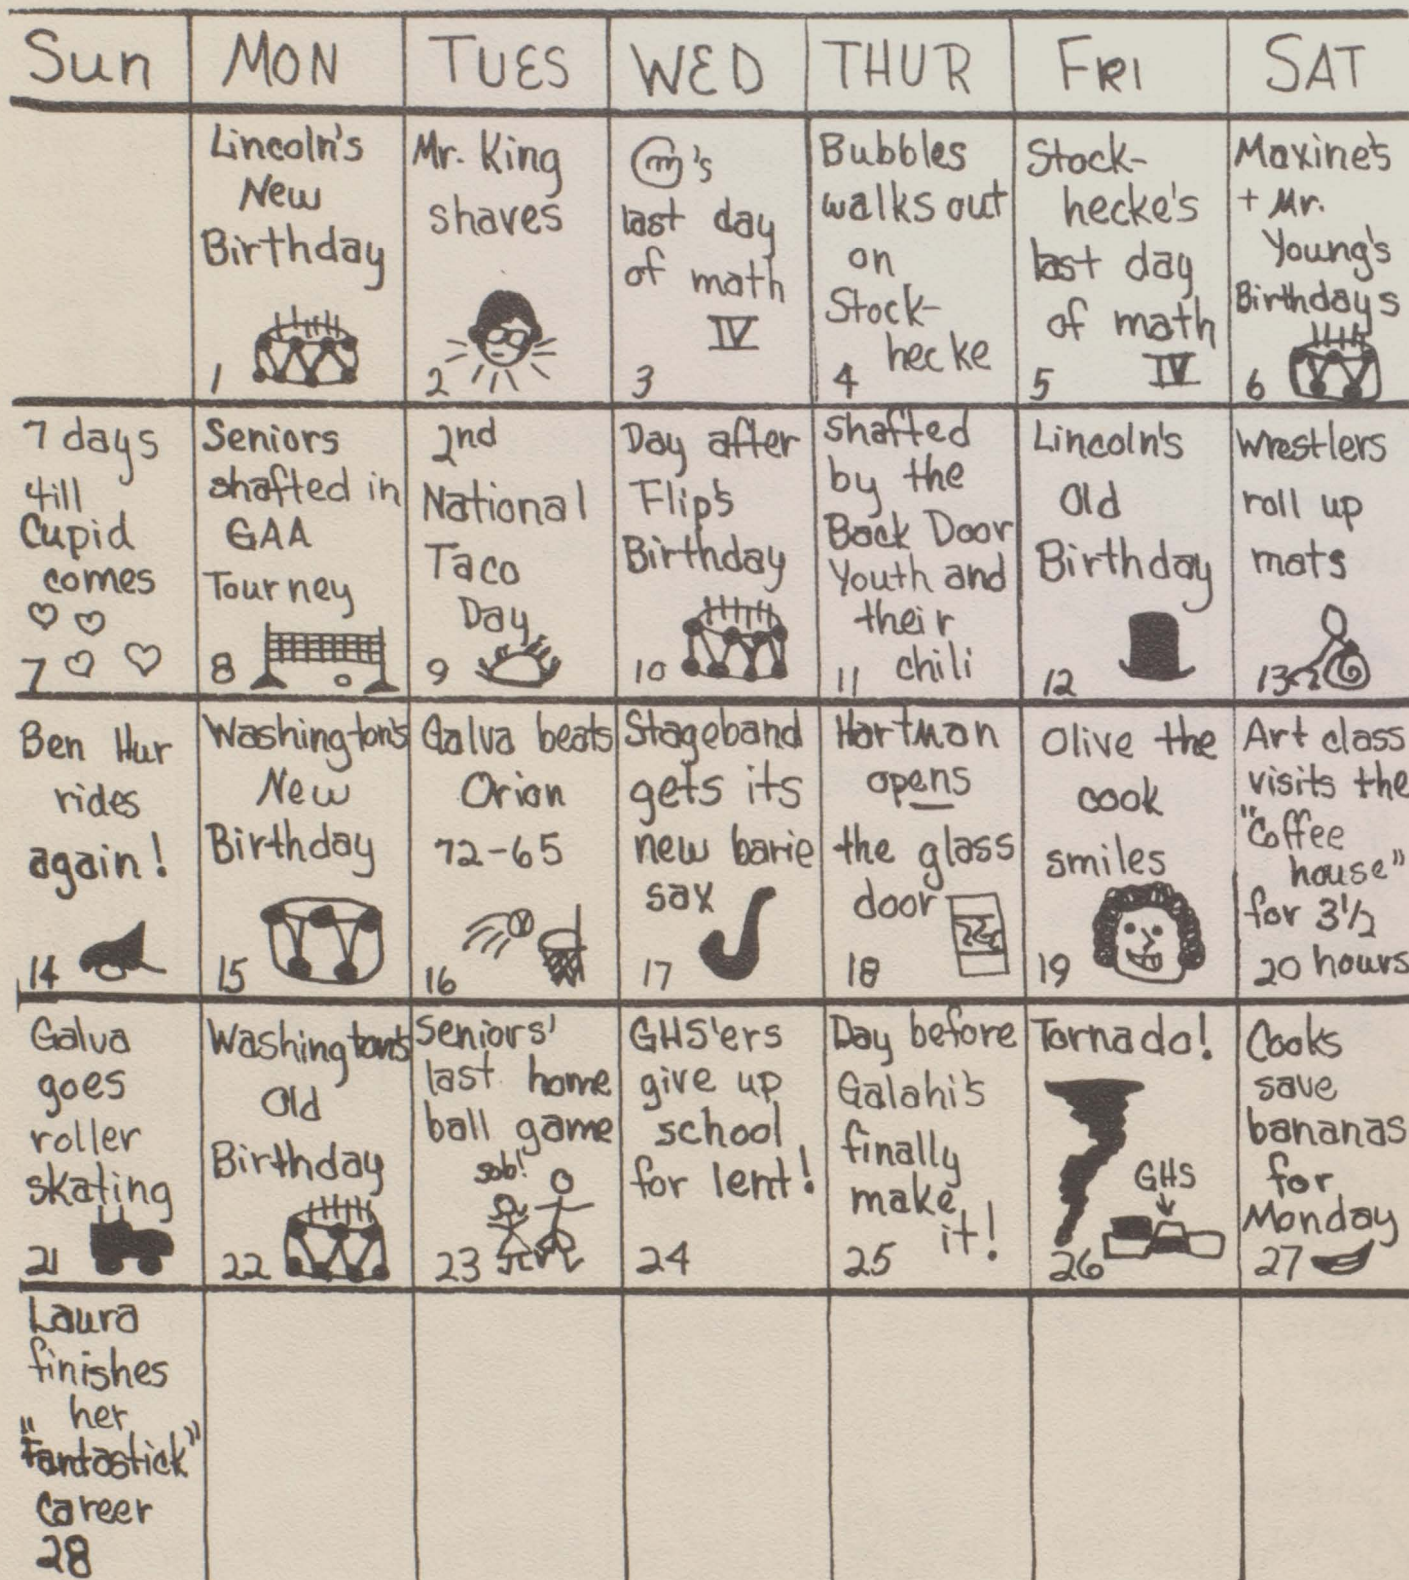 Sun MON TUES WED THUR FRI SAT
Lincoln's
New
Birthday
1
Mr. King
shaves
2
m's
last day
of math
IV
3
Bubbles
walks out
on
Stock-
hecke
4
Stock-
hecke's
last day
of math
IV
5
Maxine's
+ Mr.
Young's
Birthdays
6
7 days
till
Cupid
comes
7
Seniors
shafted in
GAA
Tourney
8
2nd
National
Taco
Day
9
Day after
Flip's
Birthday
10
shafted
by the
Back Door
Youth and
their
chili
11
Lincoln's
Old
Birthday
12
Wrestlers
roll up
mats
13
Ben Hur
rides
again!
14
Washington's
New
Birthday
15
Galva beats
Orion
72-65
16
Stageband
gets its
new barie
sax
17
Hartman
opens
the glass
door
18
Olive the
cook
smiles
19
Art class
visits the
"Coffee
house"
for 3 1/2
20 hours
Galva
goes
roller
skating
21
Washington's
Old
Birthday
22
Seniors'
last home
ball game
sob!
23
GHS'ers
give up
school
for lent!
24
Day before
Galahi's
finally
make
it!
25
Tornado!
GHS
26
Cooks
save
bananas
for
Monday
27
Laura
finishes
her
"Fantastick"
career
28